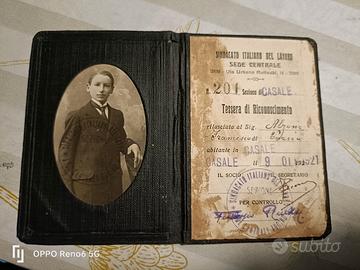 SINDACATO ITALIANO DEL LAVORO
SEDE CENTRALE
ROMA - Via Urbano Rattazzi,
N. 201 Sezione di CASALE
Tessera di Riconoscimento
rilasciata al Sig.
Francesco di
abitante in CASALE
CASALE li 9 01 1921
IL SOCIO IL SEGRETARIO
SINDACATO ITALIANO
PER CONTROLLO
OPPO Reno6 5G
subito